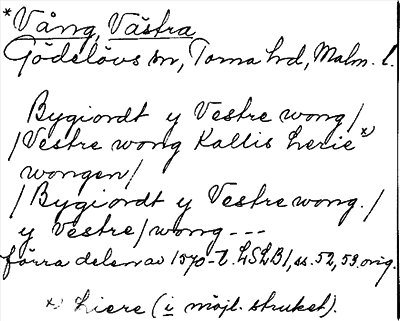 *Vång, Västra
Gödelövs sn, Torna hd, Malm. l.
Bygiordt y Vestre wong/
/Vestre wong Kallis Lerie x)
wongen/
/Bygiordt y Vestre wong./
y Vestre/wong ---
förra delen av 1570-t. LSLB1, ss. 52, 53 orig.
x) Liere (i möjl. struket).